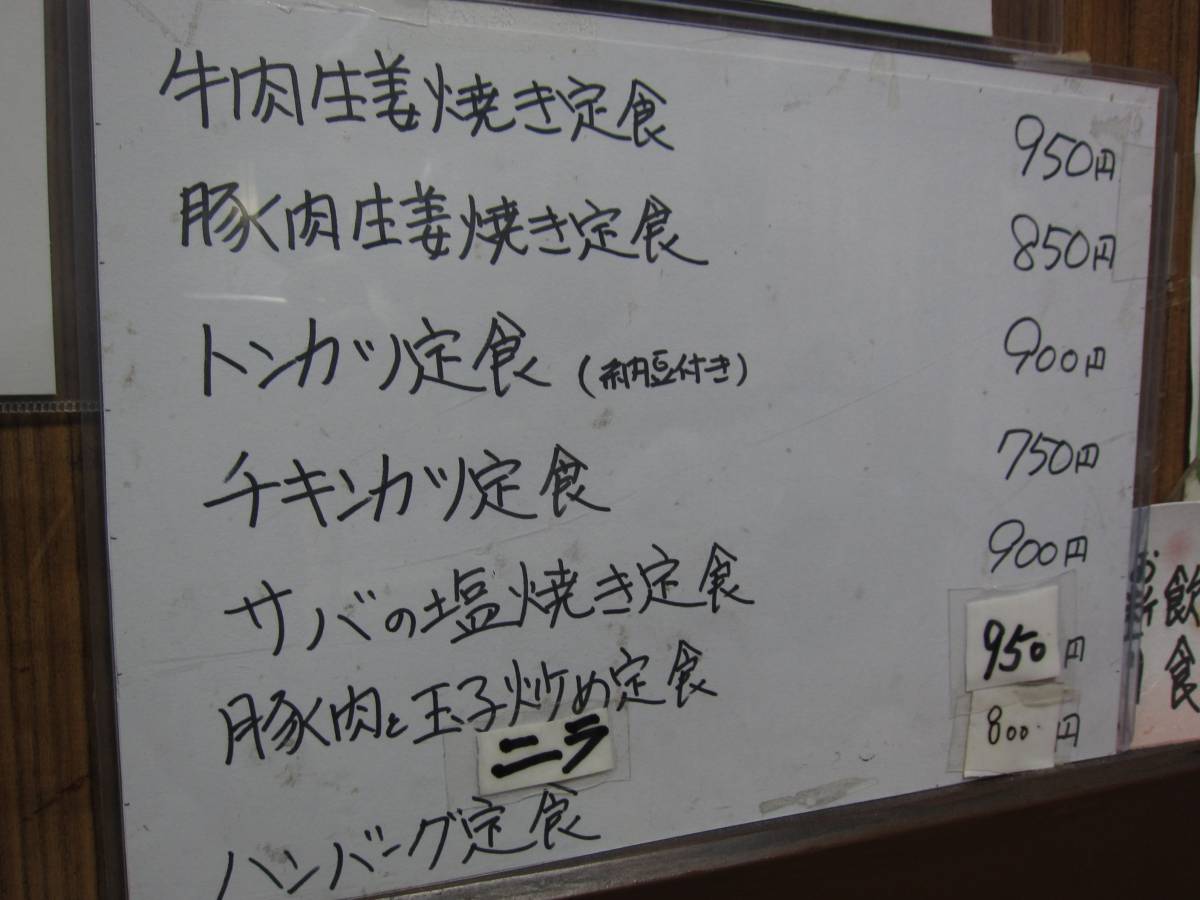 牛肉生姜焼き定食 950円
豚肉生姜焼き定食 850円
トンカツ定食 (納豆付き) 900円
チキンカツ定食 750円
サバの塩焼き定食 900円
豚肉と玉子炒め定食 950円
ニラ
ハンバーグ定食 800円
飲
食